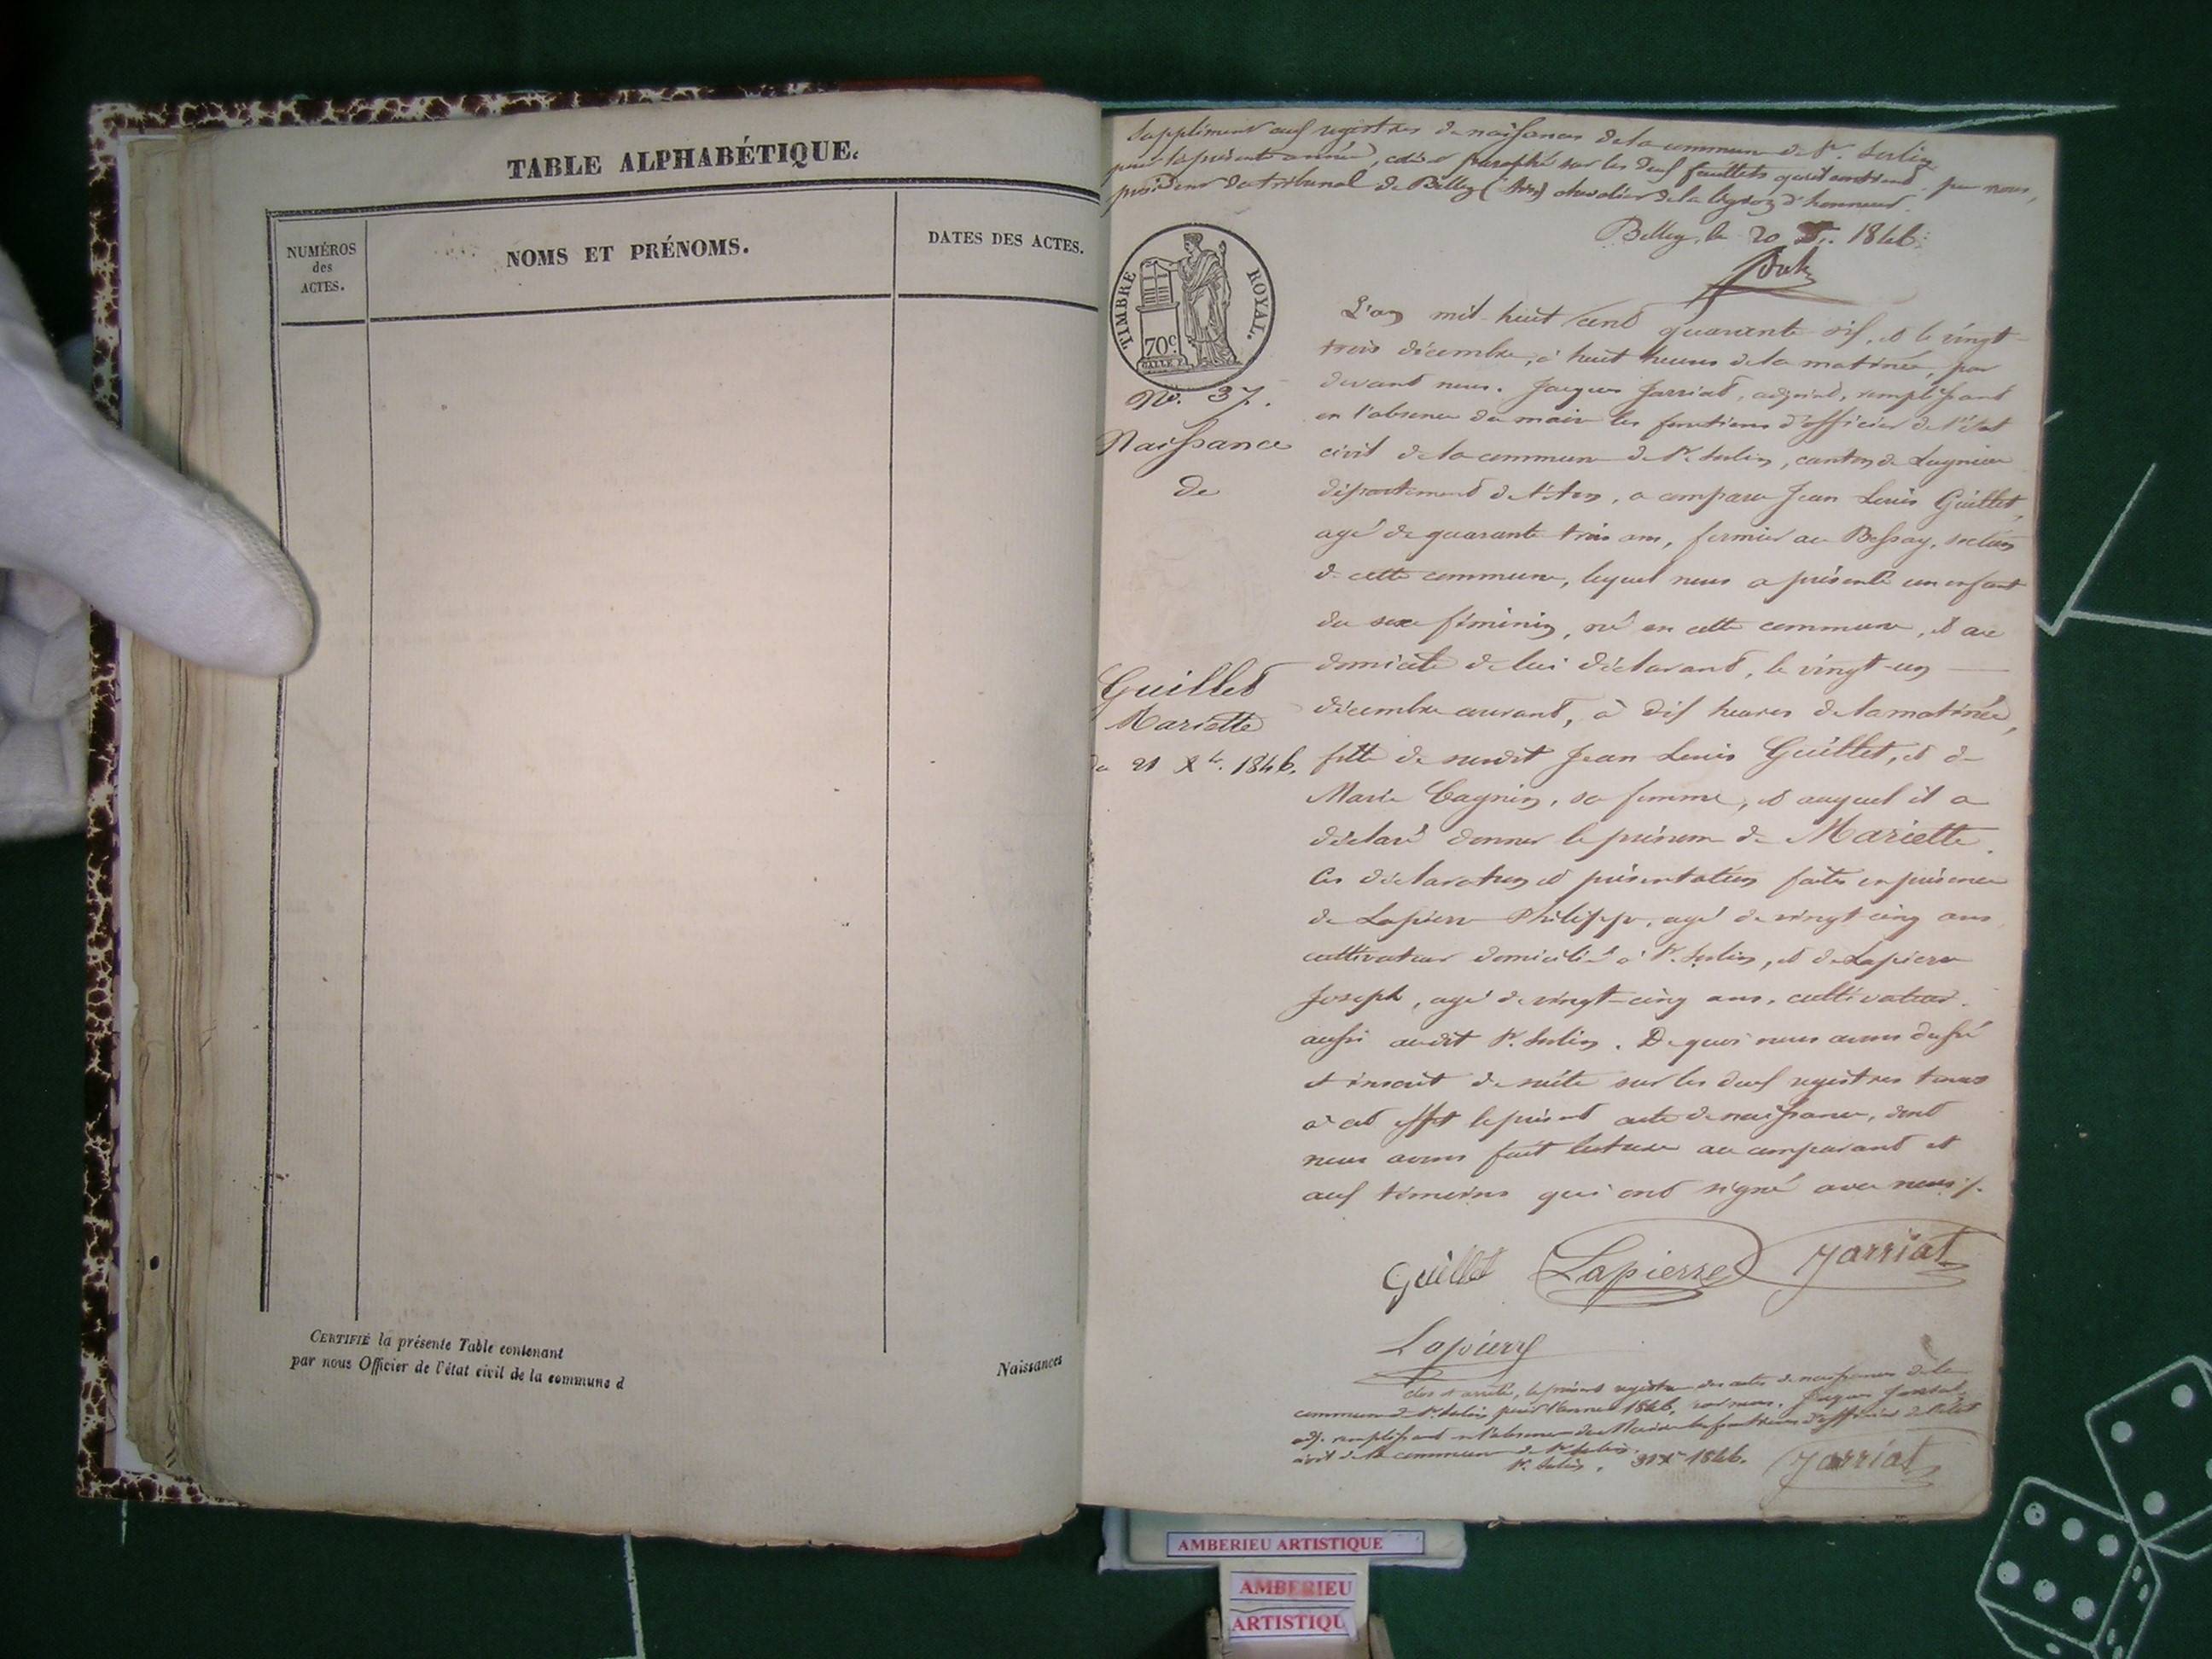 TABLE ALPHABÉTIQUE.
NUMÉROS
des
ACTES.
NOMS ET PRÉNOMS.
DATES DES ACTES.
CERTIFIÉ la présente Table contenant
Naissances
par nous Officier de l'état civil de la commune d
Supplément aux registres de naissances de la commune de St. Sorlin
pour la présente année, coté et paraphé sur les deux feuillets qu'il contient par nous,
président du tribunal de Belley (Ain) chevalier de la légion d'honneur.
Belley, le 20 1846.
TIMBRE ROYAL.
70c
No. 37.
Naissance
de
Guillet
Mariette
du 21 Xbre. 1846.
L'an mil huit cent quarante six, et le vingt-
trois décembre, à huit heures de la matinée, par
devant nous. Jacques Jarriat, adjoint, remplissant
en l'absence du maire les fonctions d'officier de l'état
civil de la commune de St. Sorlin, canton de Lagnieu
département de l'Ain, a comparu Jean Louis Guillet,
agé de quarante trois ans, fermier au Bessay, section
de cette commune, lequel nous a présenté un enfant
du sexe féminin, né en cette commune, et au
domicile de lui déclarant, le vingt-un
décembre courant, à dix heures de la matinée,
fille de susdit Jean Louis Guillet, et de
Marie Cagnin, sa femme, et auquel il a
déclaré donner le prénom de Mariette.
Ces déclaration et présentation faites en présence
de Lapierre Philippe, agé de vingt cinq ans
cultivateur domicilié à St. Sorlin, et de Lapierre
Joseph, agé de vingt-cinq ans, cultivateur.
aussi audit St. Sorlin. De quoi nous avons dressé
et inscrit de suite sur les deux registres tenus
à cet effet le présent acte de naissance, dont
nous avons fait lecture au comparant et
aux témoins qui ont signé avec nous /.
Guillet Lapierre Jarriat
Lapierre
Clos et arrêté, le présent registre des actes de naissances de la
commune de St. Sorlin pour l'année 1846, par nous. Jacques Jarriat,
adj. remplissant en l'absence du Maire les fonctions d'officier de l'état
civil de la commune de St. Sorlin.
St. Sorlin, 31 Xbre 1846. Jarriat
AMBERIEU ARTISTIQUE
AMBERIEU
ARTISTIQU